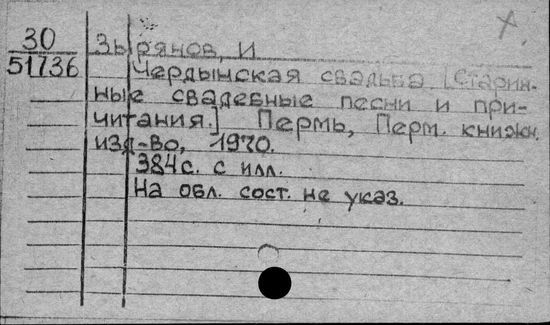 X.
30
51736
Зырянов, И.
Чердынская свадьба [Старин-
ные свадебные песни и при-
читания.] Пермь, Перм. книжн.
изд-во, 1970.
384 с. с илл.
На обл. сост. не указ.